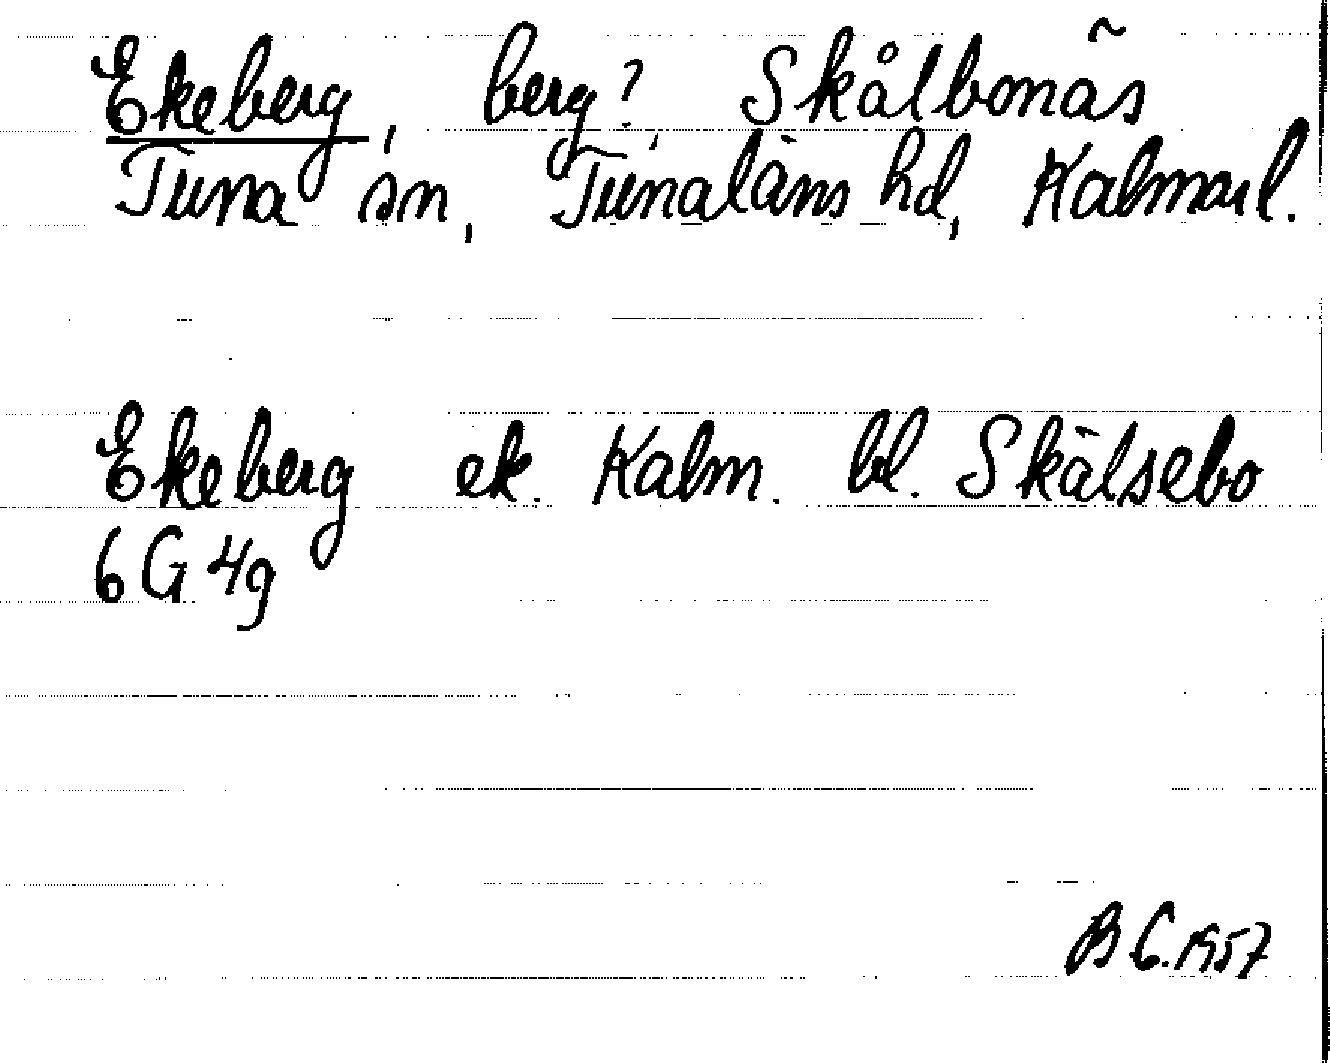 Ekeberg, berg? Skålbonäs
Tuna sn, Tunaläns hd, Kalmarl.
Ekeberg ek. Kalm. bl. Skälsebo
6G 4g
B C. 1957